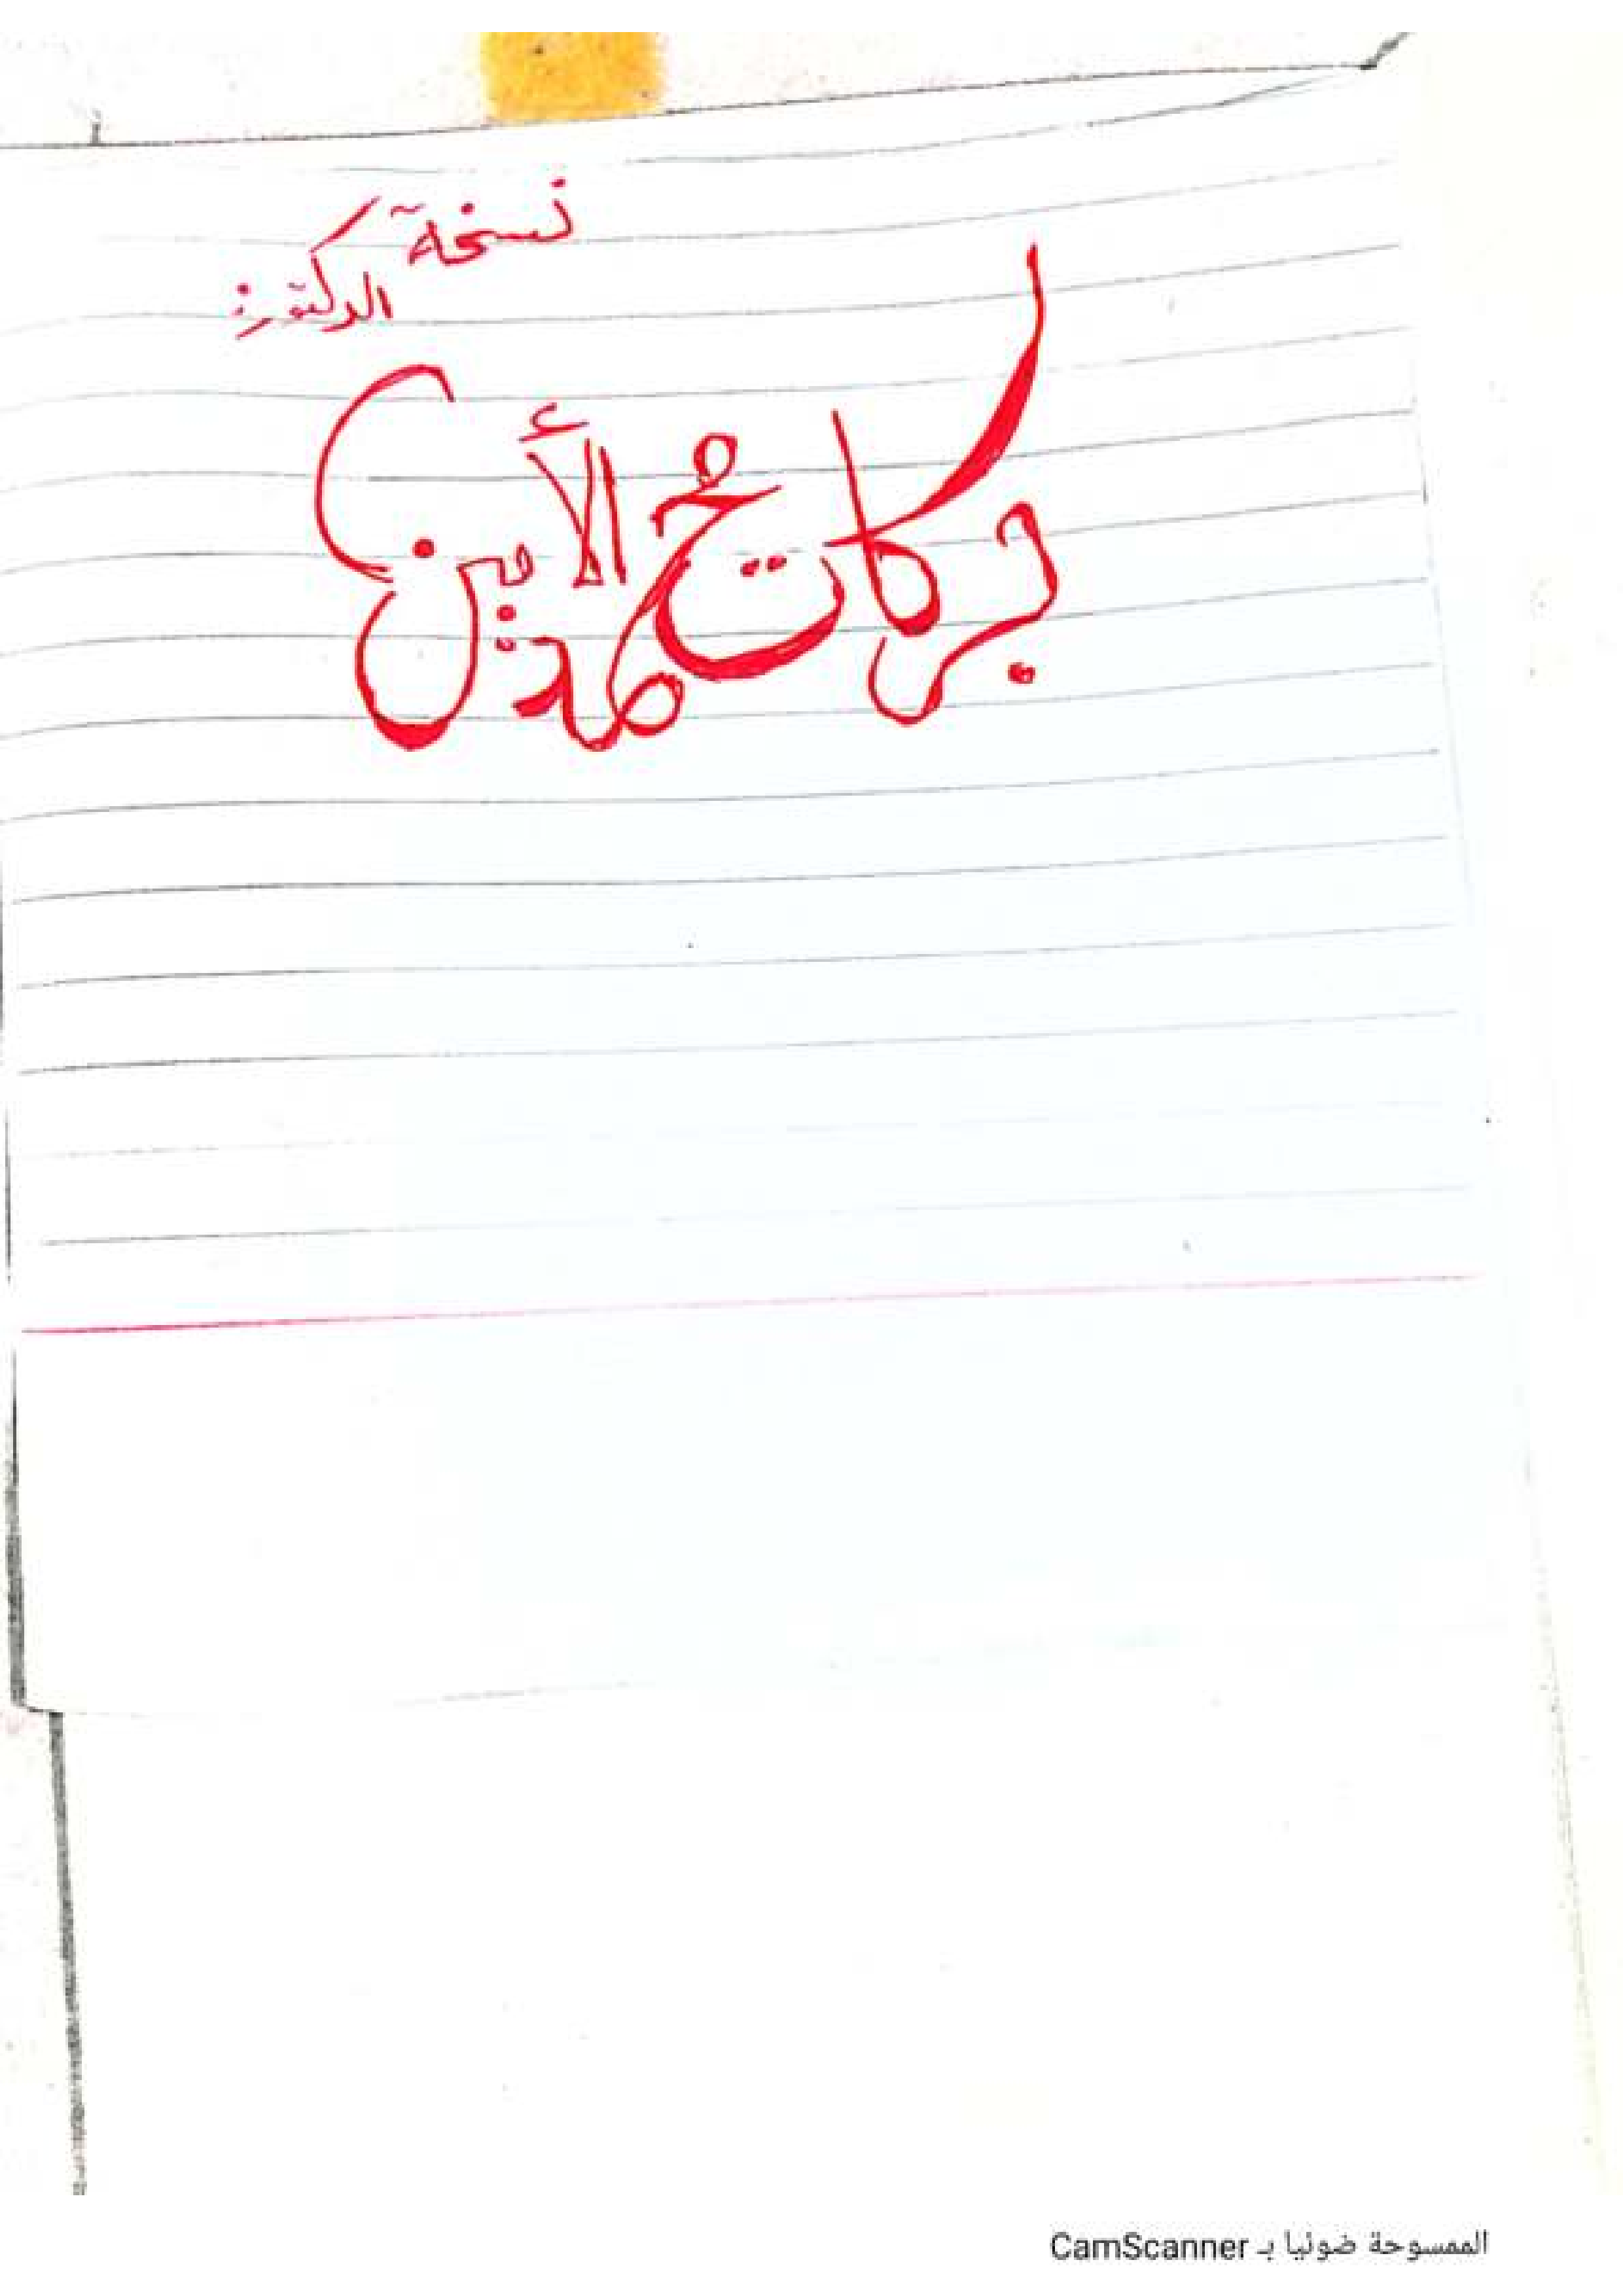 نسخة
الدكتور:
بركات محمد الأمين
الممسوحة ضوئيا بـ CamScanner